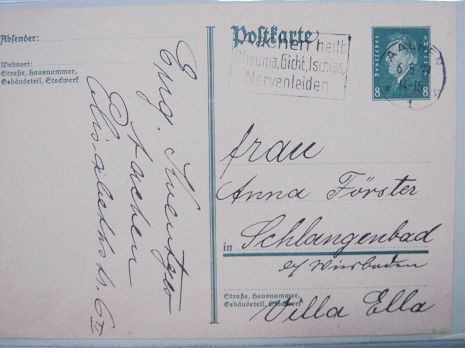 Absender:
Wohnort:
Straße, Hausnummer,
Gebäudeteil, Stockwerk
Aachen
Elisabethstr. 6
Postkarte
Aachen heilt
Rheuma, Gicht, Ischias,
Nervenleiden
AACHEN
8 8
Frau
Anna Förster
in Schlangenbad
b/ Wiesbaden
Straße, Hausnummer,
Gebäudeteil, Stockwerk
Villa Ella